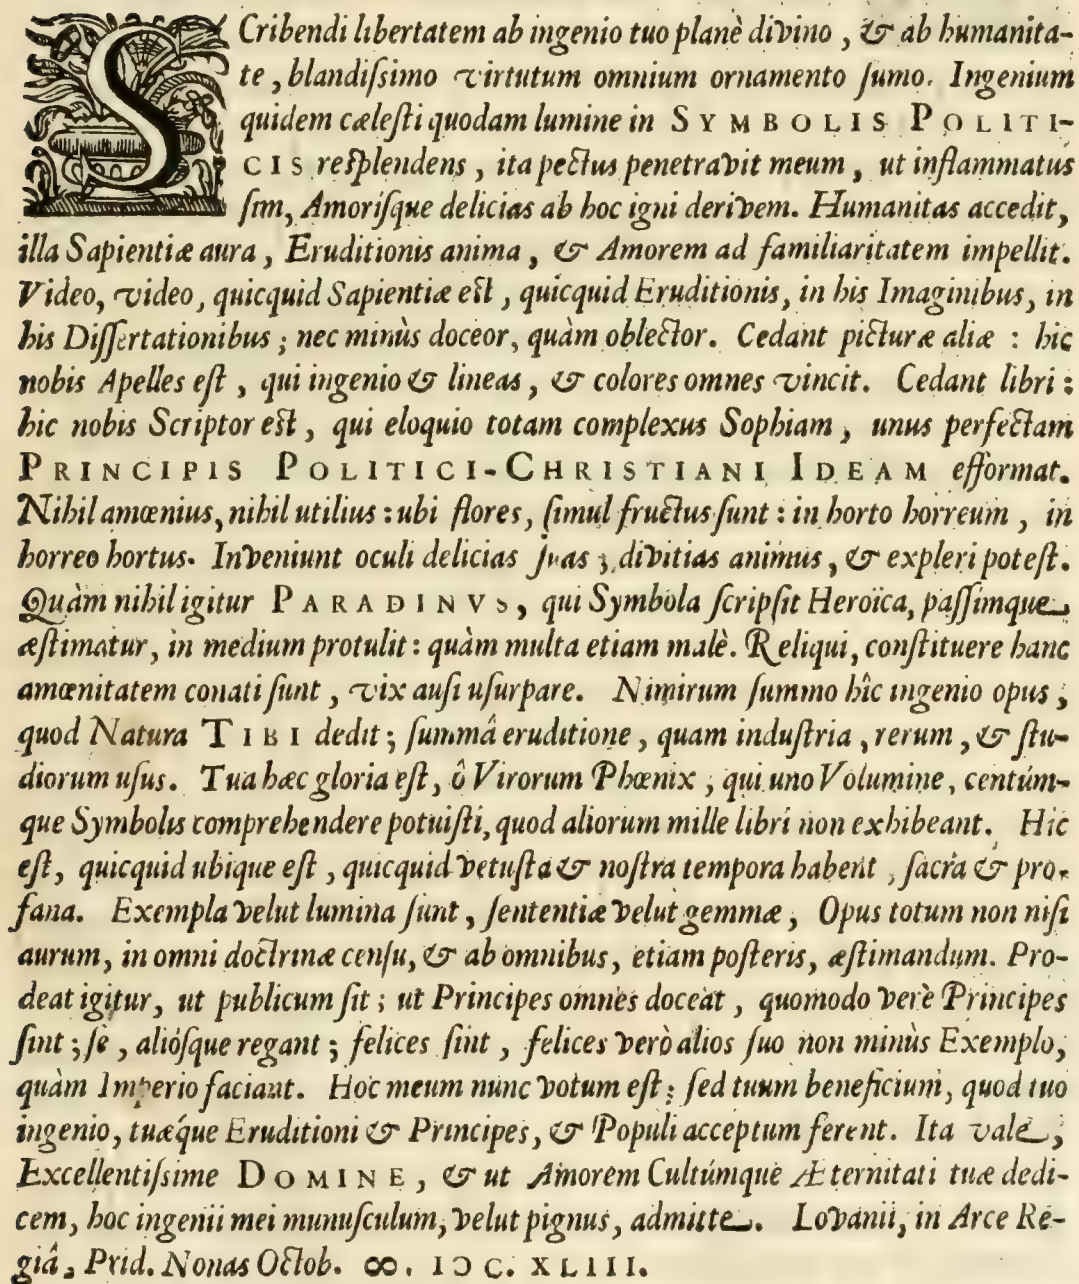 SCribendi libertatem ab ingenio tuo planè divino, & ab humanita-
te, blandiſsimo virtutum omnium ornamento ſumo. Ingenium
quidem cæleſti quodam lumine in SYMBOLIS POLITI-
CIS reſplendens, ita pectus penetravit meum, ut inflammatus
ſim, Amoriſque delicias ab hoc igni derivem. Humanitas accedit,
illa Sapientiæ aura, Eruditionis anima, & Amorem ad familiaritatem impellit.
Video, video, quicquid Sapientiæ eſt, quicquid Eruditionis, in his Imaginibus, in
his Diſſertationibus; nec minùs doceor, quàm oblector. Cedant picturæ aliæ: hic
nobis Apelles eſt, qui ingenio & lineas, & colores omnes vincit. Cedant libri:
hic nobis Scriptor eſt, qui eloquio totam complexus Sophiam, unus perfectam
PRINCIPIS POLITICI-CHRISTIANI IDEAM efformat.
Nihil amœnius, nihil utilius: ubi flores, ſimul fructus ſunt: in horto horreum, in
horreo hortus. Inveniunt oculi delicias ſuas; divitias animus, & expleri poteſt.
Quàm nihil igitur PARADINVS, qui Symbola ſcripſit Heroïca, paſſimque
æſtimatur, in medium protulit: quàm multa etiam malè. Reliqui, conſtituere hanc
amœnitatem conati ſunt, vix auſi uſurpare. Nimirum ſummo hîc ingenio opus,
quod Natura TIBI dedit; ſummâ eruditione, quam induſtria, rerum, & ſtu-
diorum uſus. Tua hæc gloria eſt, ô Virorum Phœnix, qui uno Volumine, centúm-
que Symbolis comprehendere potuiſti, quod aliorum mille libri non exhibeant. Hic
eſt, quicquid ubique eſt, quicquid vetuſta & noſtra tempora habent, ſacra & pro-
fana. Exempla velut lumina ſunt, ſententiæ velut gemmæ, Opus totum non niſi
aurum, in omni doctrinæ cenſu, & ab omnibus, etiam poſteris, æſtimandum. Pro-
deat igitur, ut publicum ſit; ut Principes omnes doceat, quomodo verè Principes
ſint; ſe, alióſque regant; felices ſint, felices verò alios ſuo non minùs Exemplo,
quàm Imperio faciant. Hoc meum nunc votum eſt; ſed tuum beneficium, quod tuo
ingenio, tuæque Eruditioni & Principes, & Populi acceptum ferent. Ita vale,
Excellentiſsime DOMINE, & ut Amorem Cultúmque Æternitati tuæ dedi-
cem, hoc ingenii mei munuſculum, velut pignus, admitte. Lovanii, in Arce Re-
giâ, Prid. Nonas Octob. ∞. IↃC. XLIII.